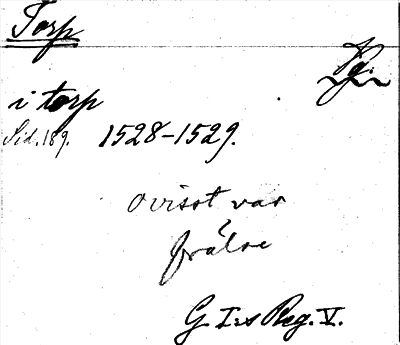 Torp
Pg.
i torp
Sid. 189. 1528-1529.
ovisst var
frälse
G. I:s Reg. V.